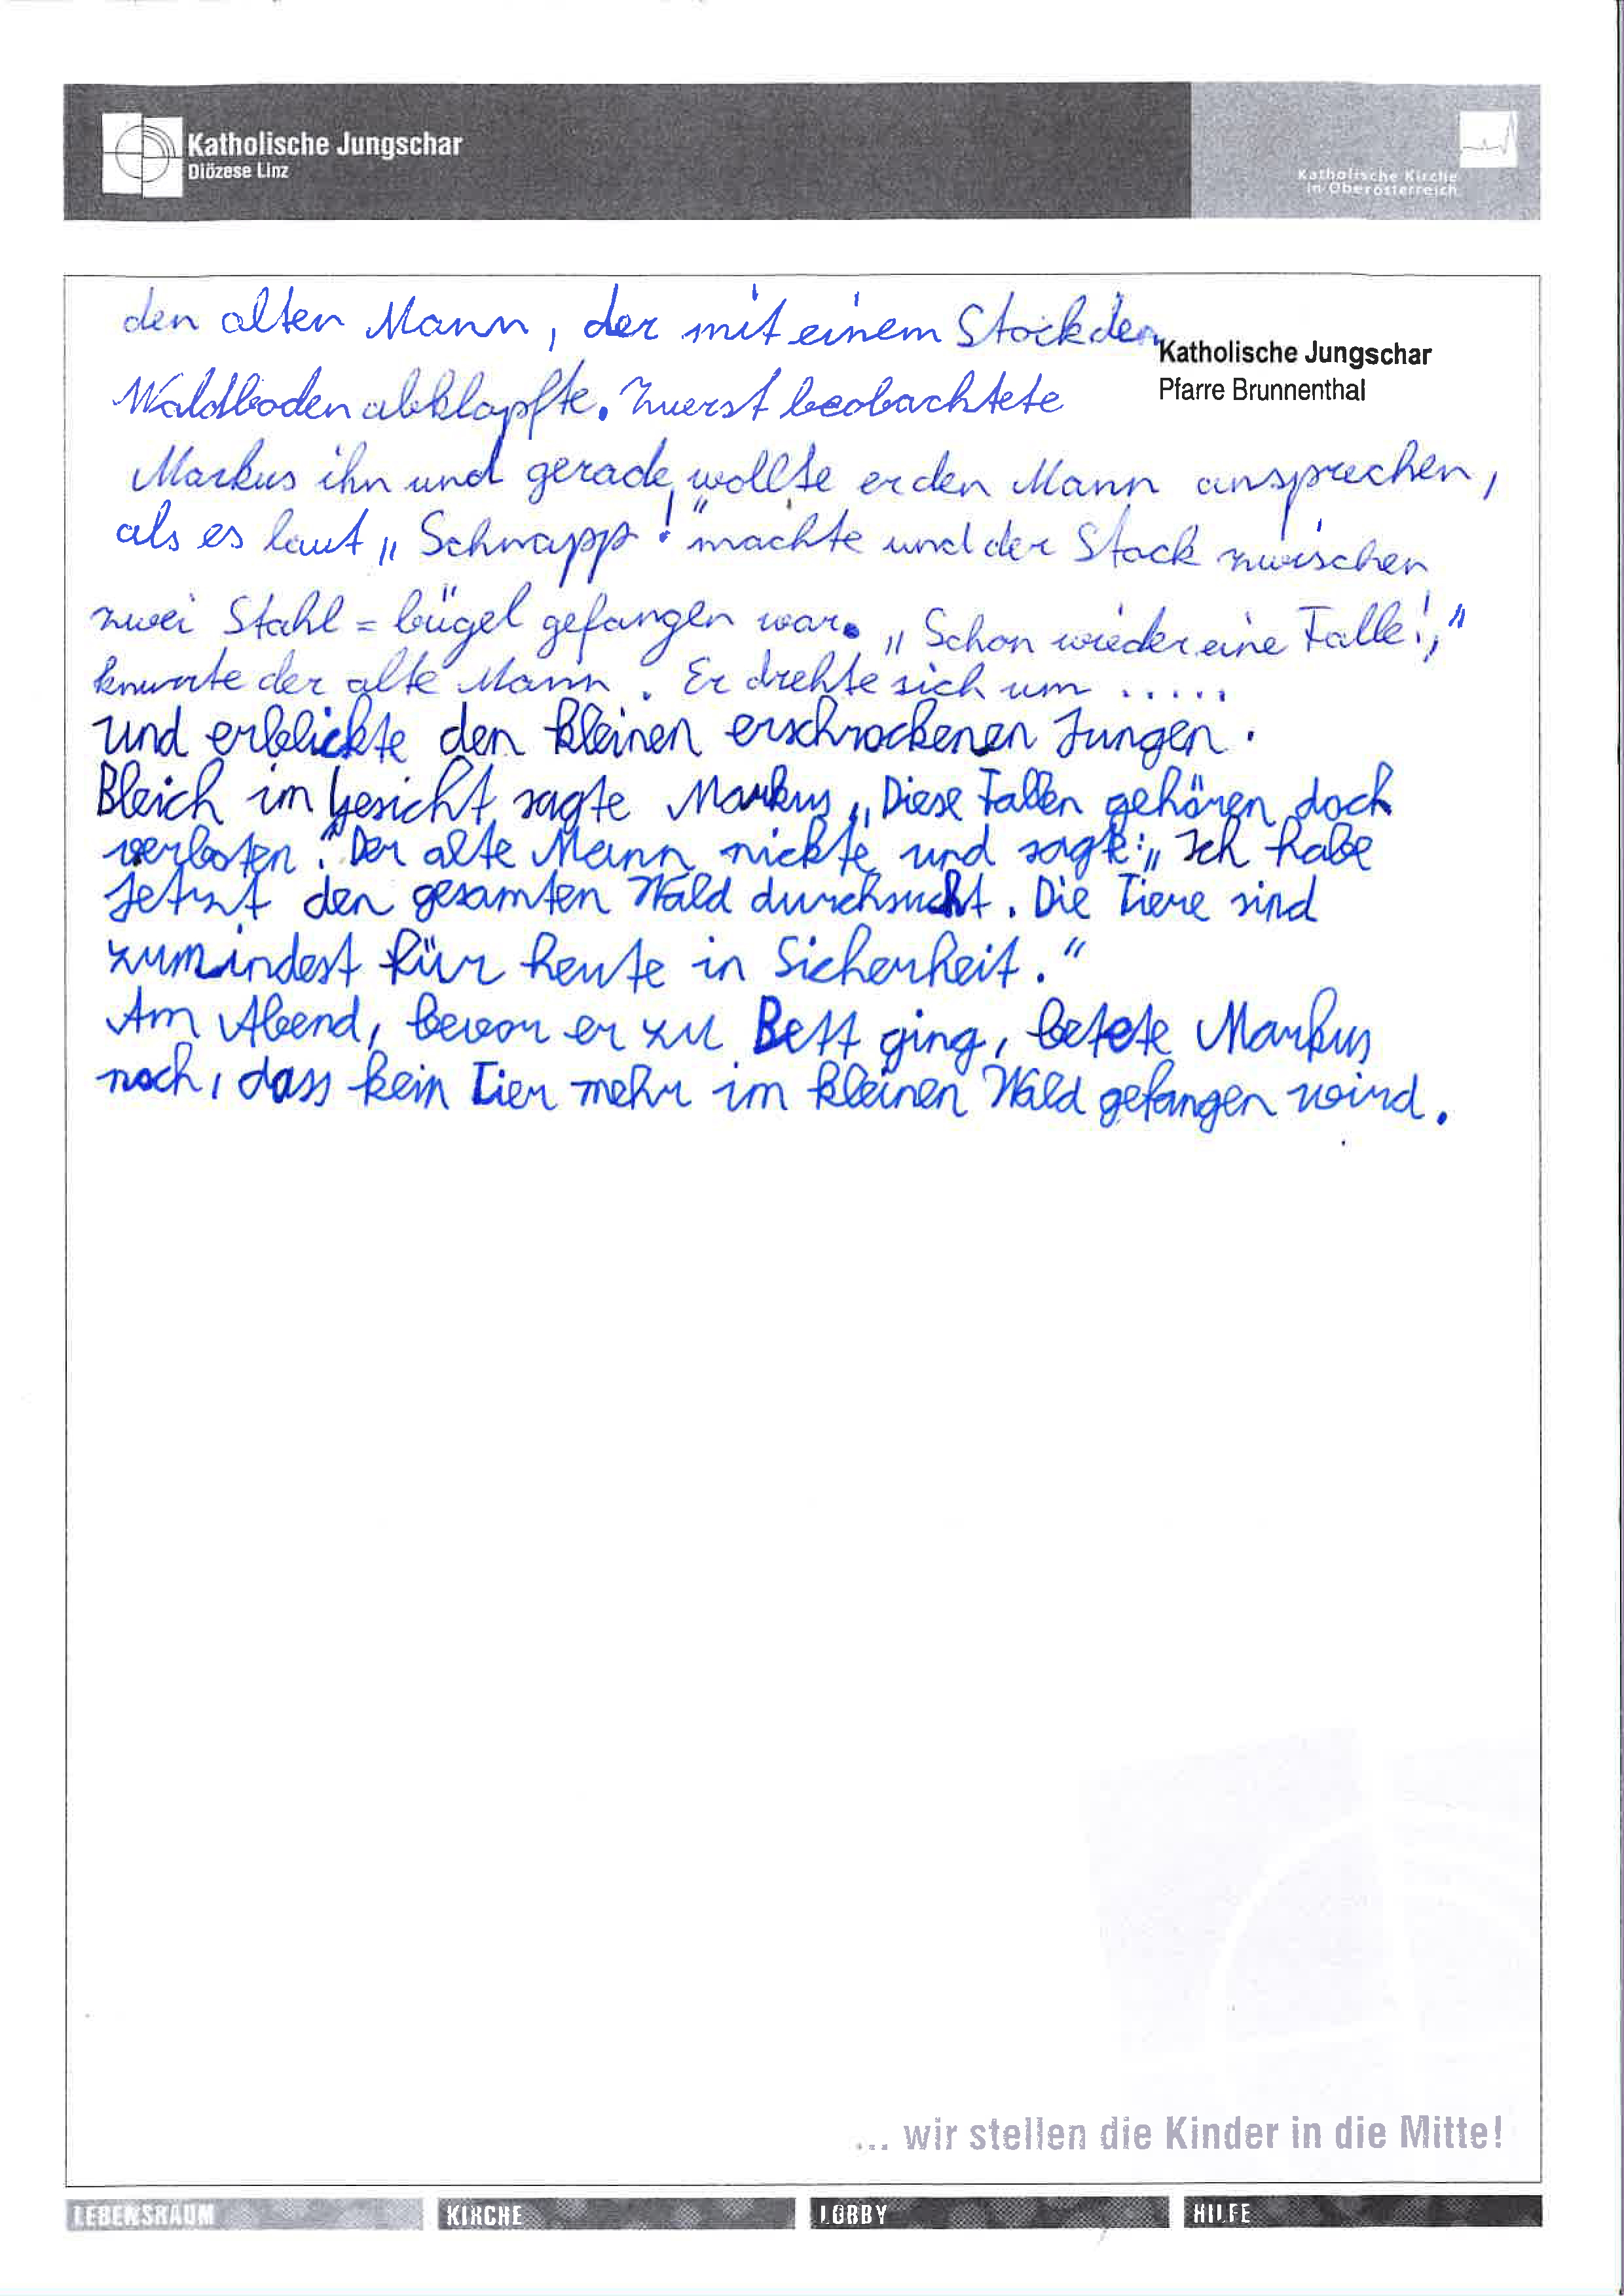 Katholische Jungschar
Diözese Linz
Katholische Kirche
in Oberösterreich
den alten Mann, der mit einem Stock den
Katholische Jungschar
Pfarre Brunnenthal
Waldboden abklopfte. Zuerst beobachtete
Markus ihn und gerade wollte er den Mann ansprechen,
als es laut „Schnapp!" machte und der Stock zwischen
zwei Stahl=bügel gefangen war. „Schon wieder eine Falle!,"
knurrte der alte Mann. Er drehte sich um .....
und erblickte den kleinen erschrockenen Jungen.
Bleich im Gesicht sagte Markus „Diese Fallen gehören doch
verboten." Der alte Mann nickte und sagte: „Ich habe
jetzt den gesamten Wald durchsucht. Die Tiere sind
zumindest für heute in Sicherheit."
Am Abend, bevor er zu Bett ging, betete Markus
noch, dass kein Tier mehr im kleinen Wald gefangen wird.
... wir stellen die Kinder in die Mitte!
LEBENSRAUM KIRCHE LOBBY HILFE